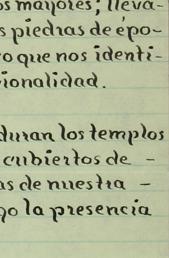 os mayores; lleva-
s piedras de épo-
o que nos identi-
ionalidad.
duran los templos
cubiertos de -
as de nuestra -
go la presencia